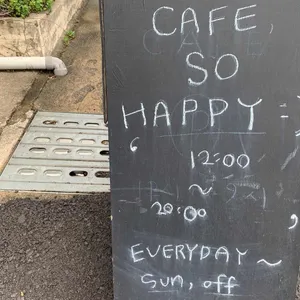 CAFE,
SO
HAPPY =
12:00
~
20:00
EVERYDAY ~
Sun, off